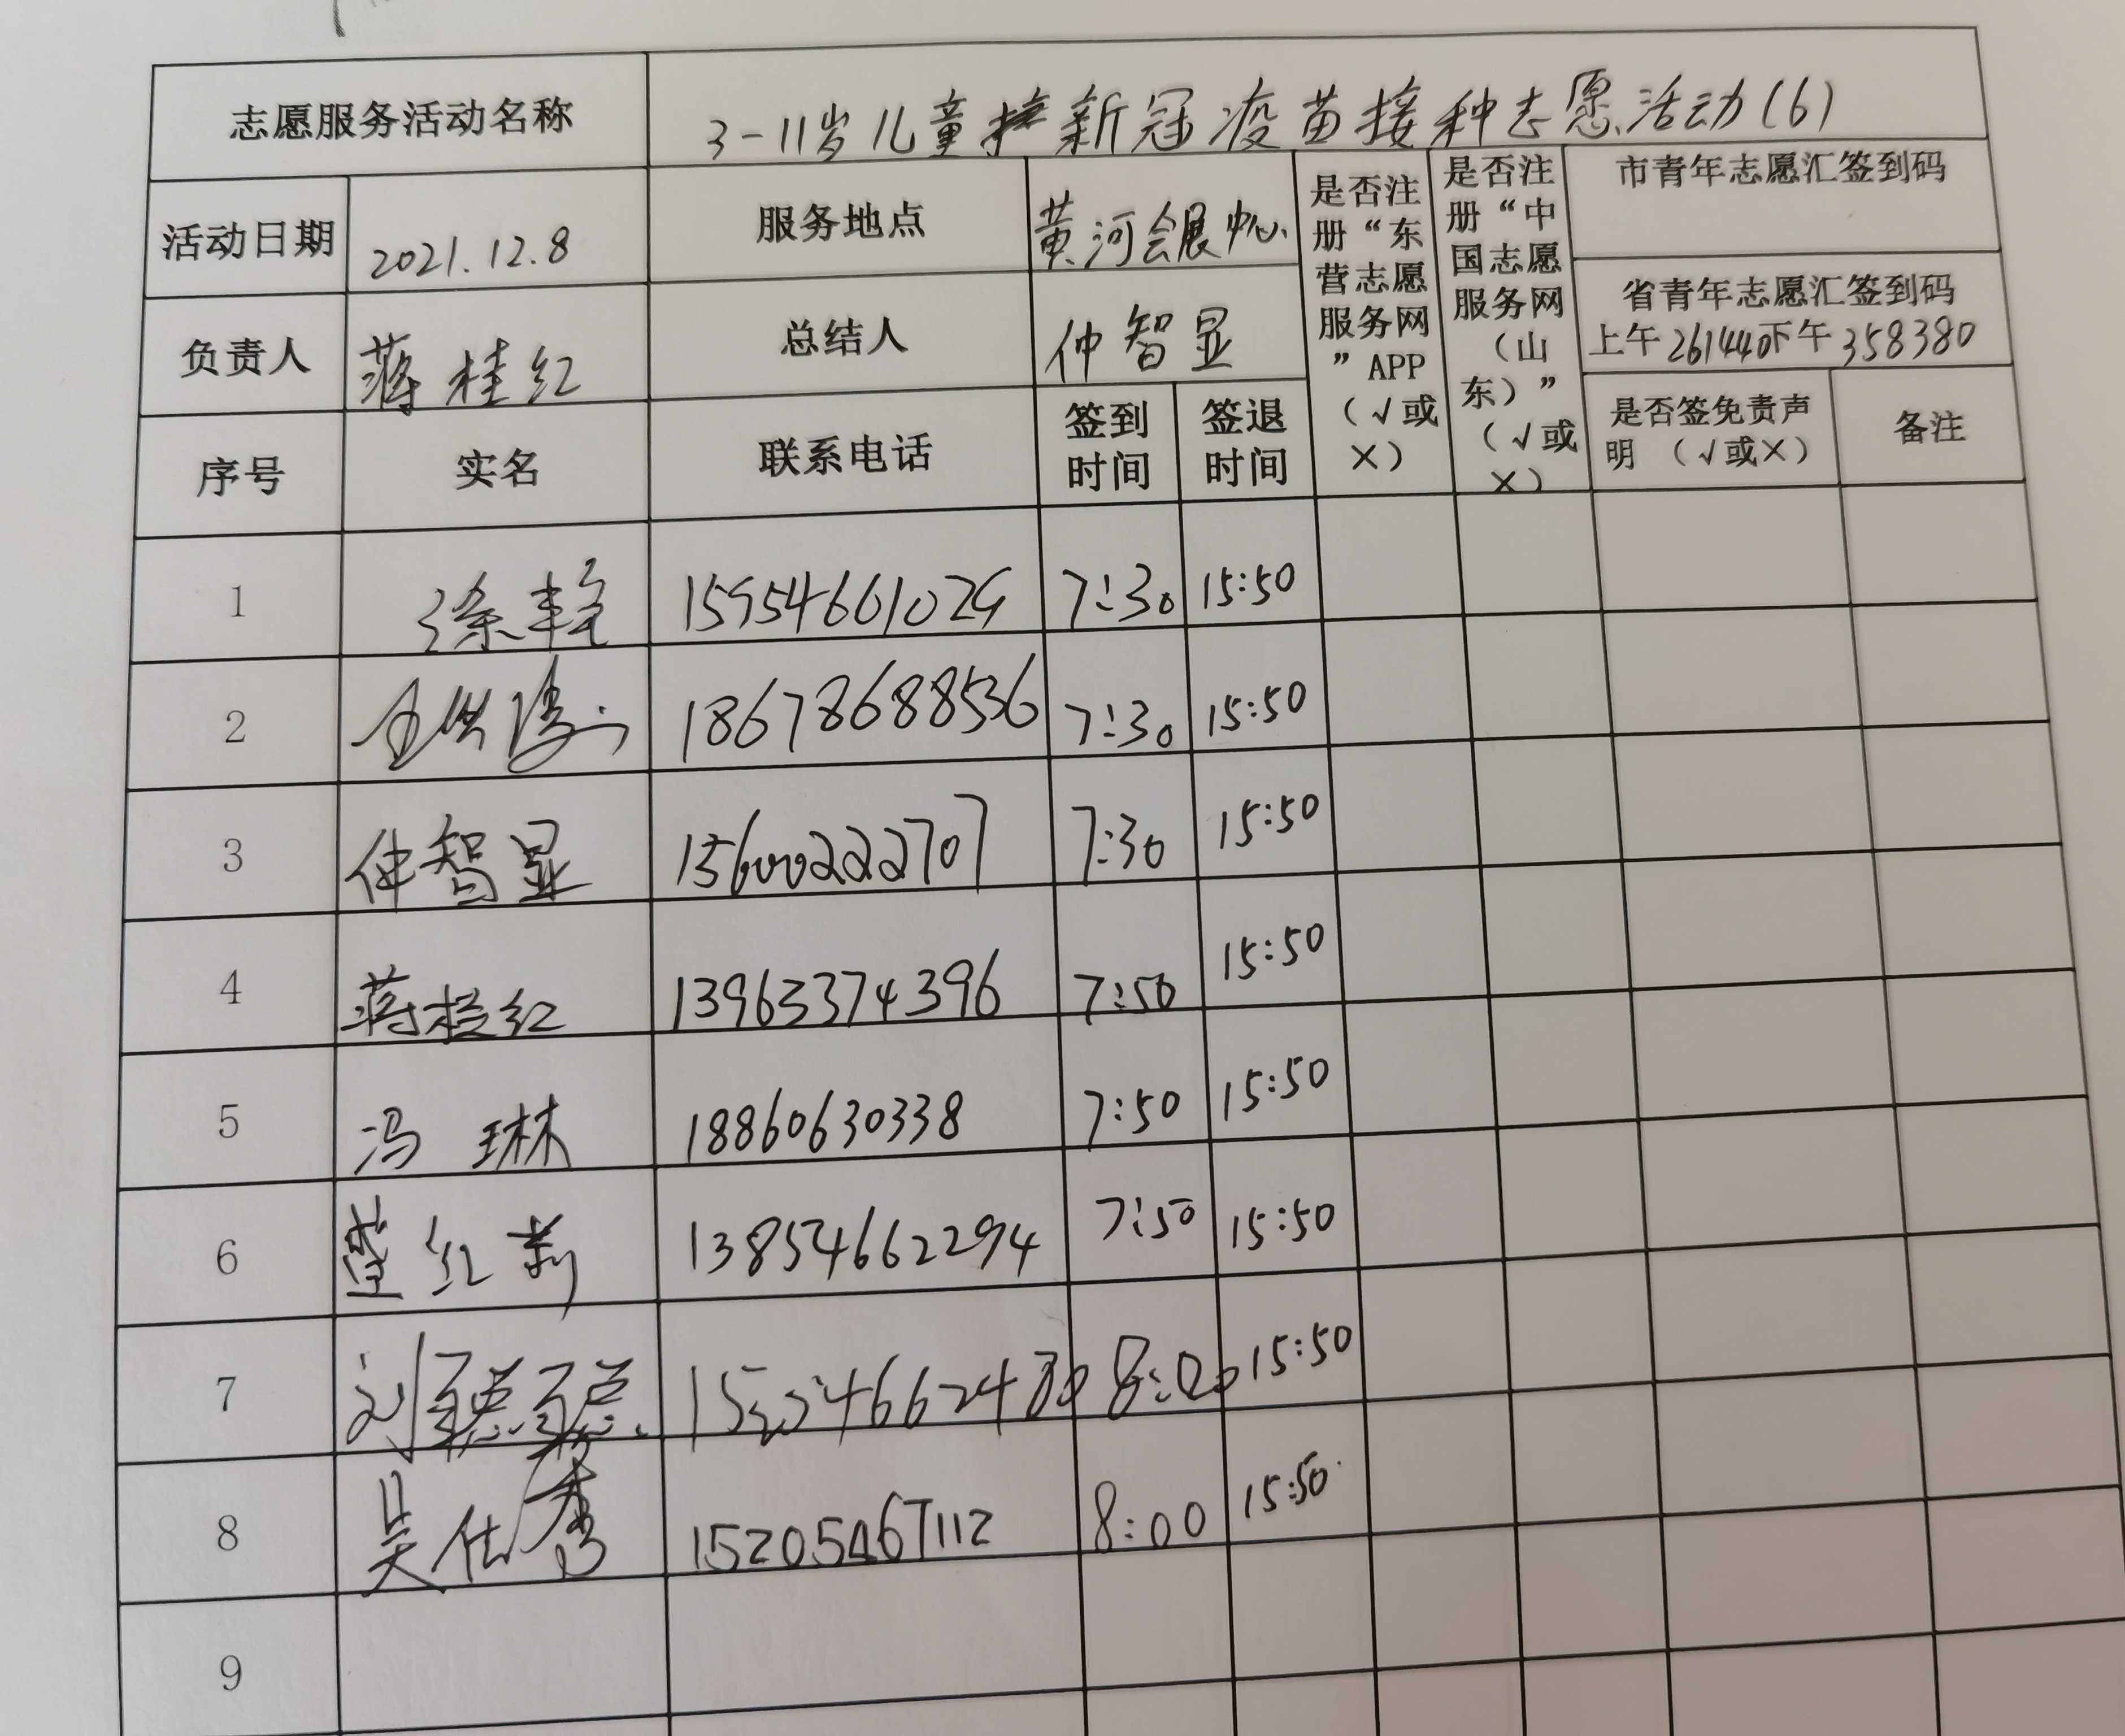 志愿服务活动名称 3-11岁儿童新冠疫苗接种志愿活动(6)
活动日期 2021.12.8 服务地点 黄河会展中心
是否注册“东营志愿服务网”APP（√或×）
是否注册“中国志愿服务网（山东）”（√或×）
市青年志愿汇签到码
省青年志愿汇签到码
上午261440下午358380
负责人 蒋桂红 总结人 仲智显
序号 实名 联系电话 签到时间 签退时间 是否签免责声明（√或×） 备注
1 徐艳 15954661029 7:30 15:50
2 18678688536 7:30 15:50
3 仲智显 15600222707 7:30 15:50
4 蒋桂红 13963374396 7:50 15:50
5 冯琳 18860630338 7:50 15:50
6 董红莉 13854662294 7:50 15:50
7 刘聪聪 8:00 15:50
8 吴仕秀 15205467112 8:00 15:50
9